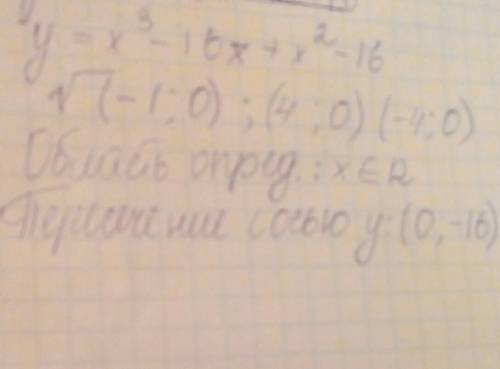 y = x³ - 16x + x² - 16
√ (-1; 0) ; (4 ; 0) (-4; 0)
Область опред. : x ∈ R
Пересечение с осью y: (0, -16)